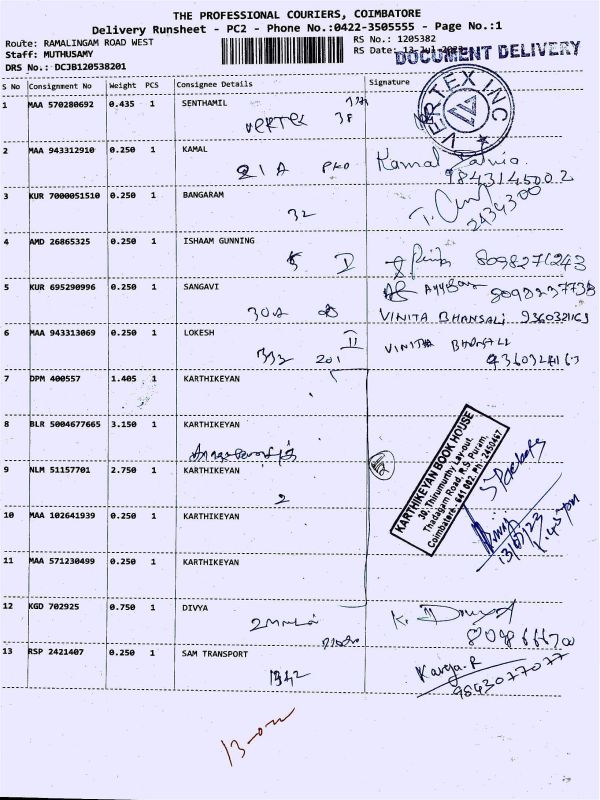 THE PROFESSIONAL COURIERS, COIMBATORE
Delivery Runsheet - PC2 - Phone No.:0422-3505555 - Page No.:1
Route: RAMALINGAM ROAD WEST
RS No.: 1205382
Staff: MUTHUSAMY
RS Date: 13-Jul-
DRS No.: DCJB120538201
DOCUMENT DELIVERY
S No Consignment No Weight PCS Consignee Details Signature
VERTEX INC
1 MAA 570280692 0.435 1 SENTHAMIL
vertex 38
2 MAA 943312910 0.250 1 KAMAL
Kamal
21A
9843145002
3 KUR 7000051510 0.250 1 BANGARAM
32
2434300
4 AMD 26865325 0.250 1 ISHAAM GUNNING
5 II 8098271243
5 KUR 695290996 0.250 1 SANGAVI
8098237738
302
VINITA BHANSALI 9360321163
6 MAA 943313069 0.250 1 LOKESH
II
VINITHA BHANSALI
201
7 DPM 400557 1.405 1 KARTHIKEYAN
8 BLR 5004677665 3.150 1 KARTHIKEYAN
KARTHIKEYAN BOOK HOUSE
30, Thirumurthy Lay-out,
Thadagam Road, R.S. Puram,
Coimbatore - 641 002. Ph : 2450467
9 NLM 51157701 2.750 1 KARTHIKEYAN
2
13/07/23
10 MAA 102641939 0.250 1 KARTHIKEYAN
11 MAA 571230499 0.250 1 KARTHIKEYAN
12 KGD 702925 0.750 1 DIVYA
13 RSP 2421407 0.250 1 SAM TRANSPORT
Karya.R
1942
9843077077